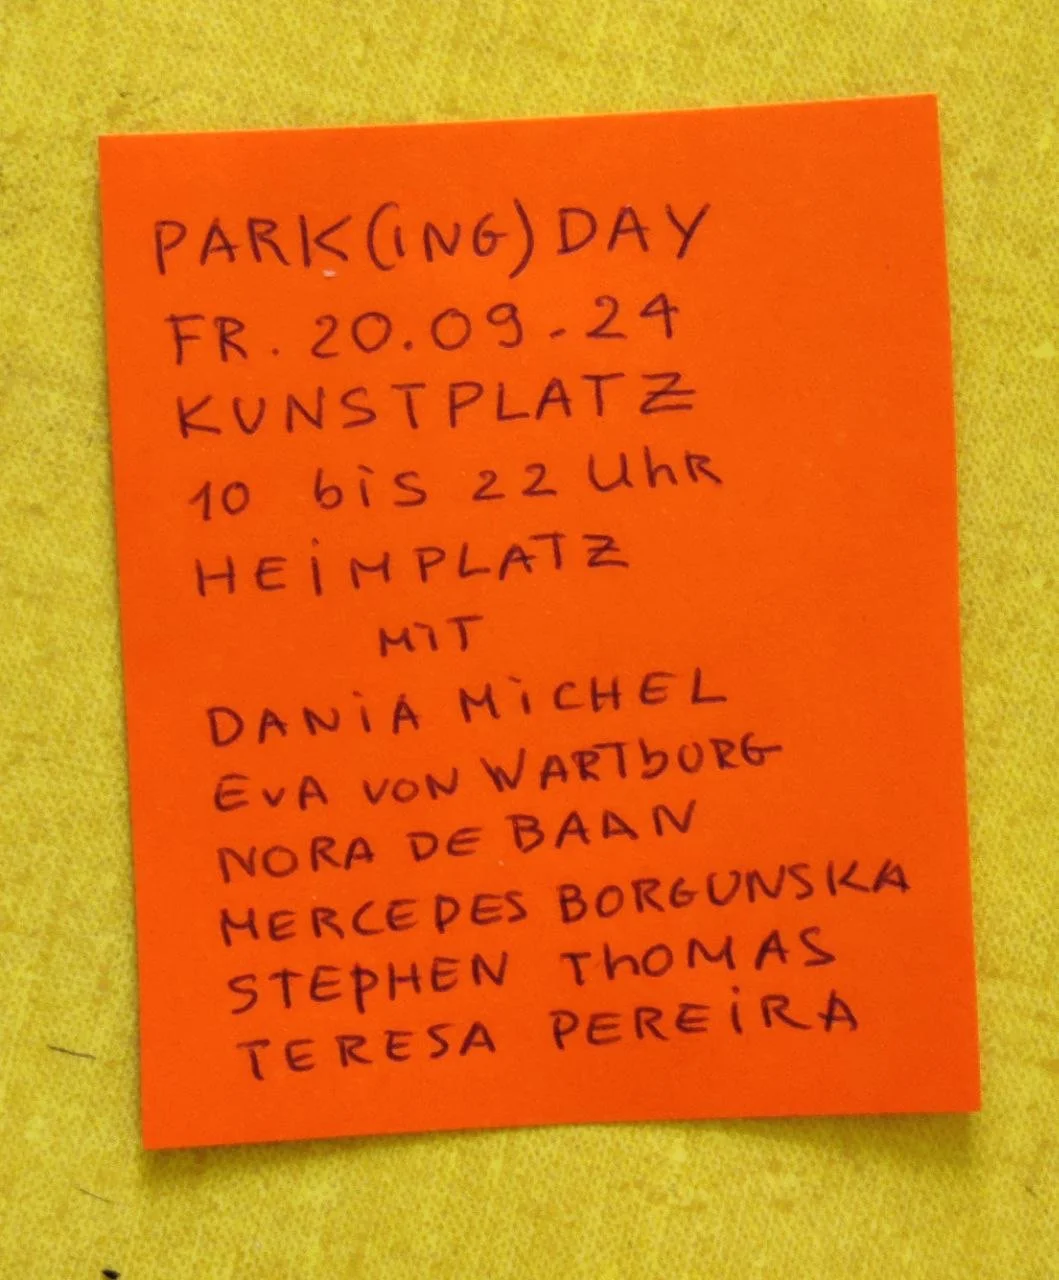 PARK(iNG) DAY
FR. 20.09.24
KUNSTPLATZ
10 biS 22 UhR
HEiMPLATZ
MiT
DANiA MiCHEL
EVA VON WARTbURG
NORA DE BAAN
MERCEDES BORGUNSKA
STEPHEN ThOMAS
TERESA PEREiRA